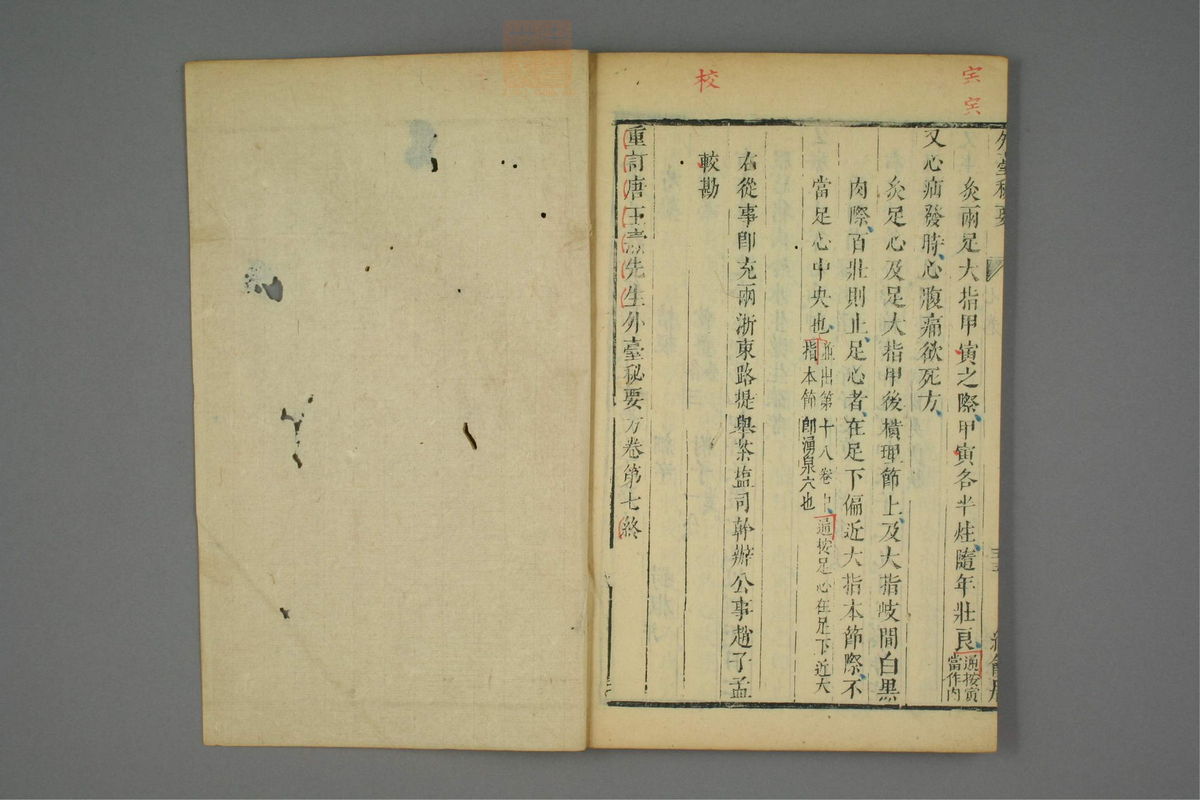 宍
宍
校
外臺秘要
灸兩足大指甲寅之際、甲寅各半炷、隨年壯良、
通按寅
當作肉
又心疝發時、心腹痛欲死方、
灸足心及足大指甲後橫理節上、及大指岐間白黑
肉際、百壯則止、足心者、在足下偏近大指本節際、不
當足心中央也、
並出第十八卷中、通按足心在足下近大
指本節即湧泉穴也
右從事郎充兩浙東路提舉茶塩司幹辦公事趙子孟
較勘
重訂唐王燾先生外臺秘要方卷第七終